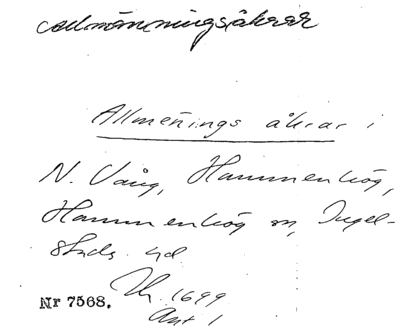 allmänningsåkrar
Allmeñings åkrar i
N. Vång, Hammenhög,
Hammenhög sn, Ingel-
stads hd
Nr 7568.
1699
Akt 1